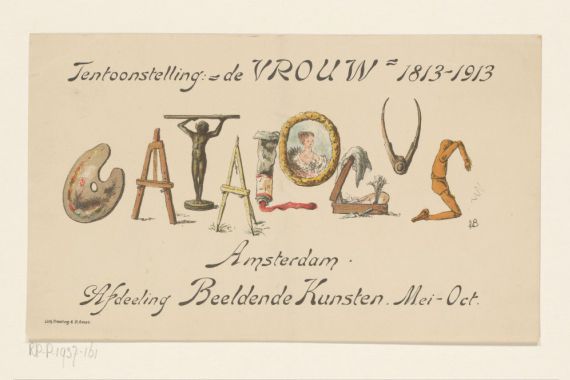 Tentoonstelling: = de VROUW = 1813-1913
CATALOGVS
Amsterdam.
Afdeeling Beeldende Kunsten. Mei-Oct.
RP-P-1937-161